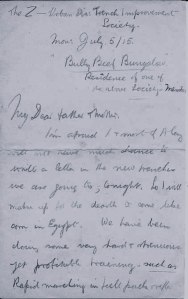 The Z - Urban Dis. Trench Improvement
Society.
Mon: July 5/15.
"Bully Beef Bungalow"
Residence of one of
the above Society's Members
My Dear Father & Mother,
I'm afraid I & most of A Coy
will not have much chance to
write a letter in the new trenches
we are going to, tonight. So I will
make up for the dearth & some like
calm in Egypt. We have been
doing some very hard & strenuous
yet profitable training, such as
Rapid marching in full pack with